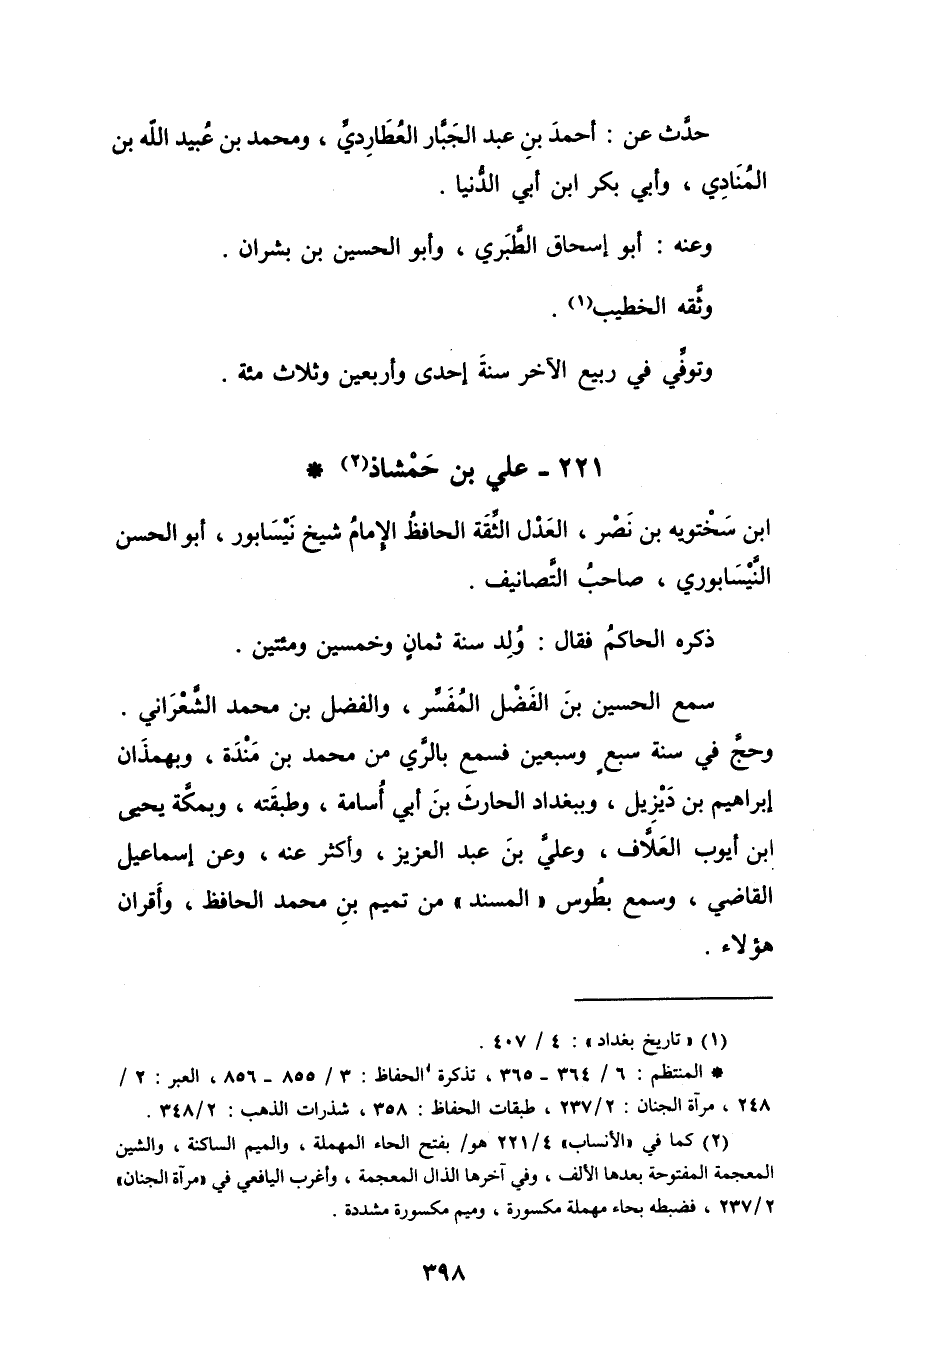 حدَّث عن : أحمدَ بنِ عبد الجَبَّار العُطَارِديِّ ، ومحمد بن عُبيد اللّه بن
المُنَادِي ، وأبي بكر ابن أبي الدُّنيا .
وعنه : أبو إسحاق الطَّبَري ، وأبو الحسين بن بشران .
وثَّقه الخطيب(١) .
وتوفِّي في ربيع الآخر سنةَ إحدى وأربعين وثلاث مئة .
٢٢١ - علي بن حَمْشاذ(٢) *
ابن سَخْتويه بن نَصْر ، العَدْل الثِّقَة الحافظُ الإمامُ شيخ نَيْسَابور ، أبو الحسن
النَّيْسَابوري ، صاحبُ التَّصانيف .
ذكره الحاكمُ فقال : وُلِد سنة ثمانٍ وخمسين ومئتين .
سمع الحسين بنَ الفَضْل المُفَسِّر ، والفضل بن محمد الشَّعْرَاني .
وحجَّ في سنة سبعٍ وسبعين فسمع بالرَّي من محمد بن مَنْدَة ، وبهمذَان
إبراهيم بن دَيْزِيل ، وببغداد الحارثَ بنَ أبي أُسامة ، وطبقَته ، وبمكَّة يحيى
ابن أيوب العَلَّاف ، وعليَّ بنَ عبد العزيز ، وأكثر عنه ، وعن إسماعيل
القاضي ، وسمع بطُوس « المسند » من تميم بنِ محمد الحافظ ، وأَقران
هؤلاء .
(١) « تاريخ بغداد » : ٤ / ٤٠٧ .
* المنتظم : ٦ / ٣٦٤ - ٣٦٥ ، تذكرة الحفاظ : ٣ / ٨٥٥ - ٨٥٦ ، العبر : ٢ /
٢٤٨ ، مرآة الجنان : ٢٣٧/٢ ، طبقات الحفاظ : ٣٥٨ ، شذرات الذهب : ٣٤٨/٢ .
(٢) كما في «الأنساب» ٢٢١/٤ هو/ بفتح الحاء المهملة ، والميم الساكنة ، والشين
المعجمة المفتوحة بعدها الألف ، وفي آخرها الذال المعجمة ، وأغرب اليافعي في «مرآة الجنان»
٢٣٧/٢ ، فضبطه بحاء مهملة مكسورة ، وميم مكسورة مشددة .
٣٩٨